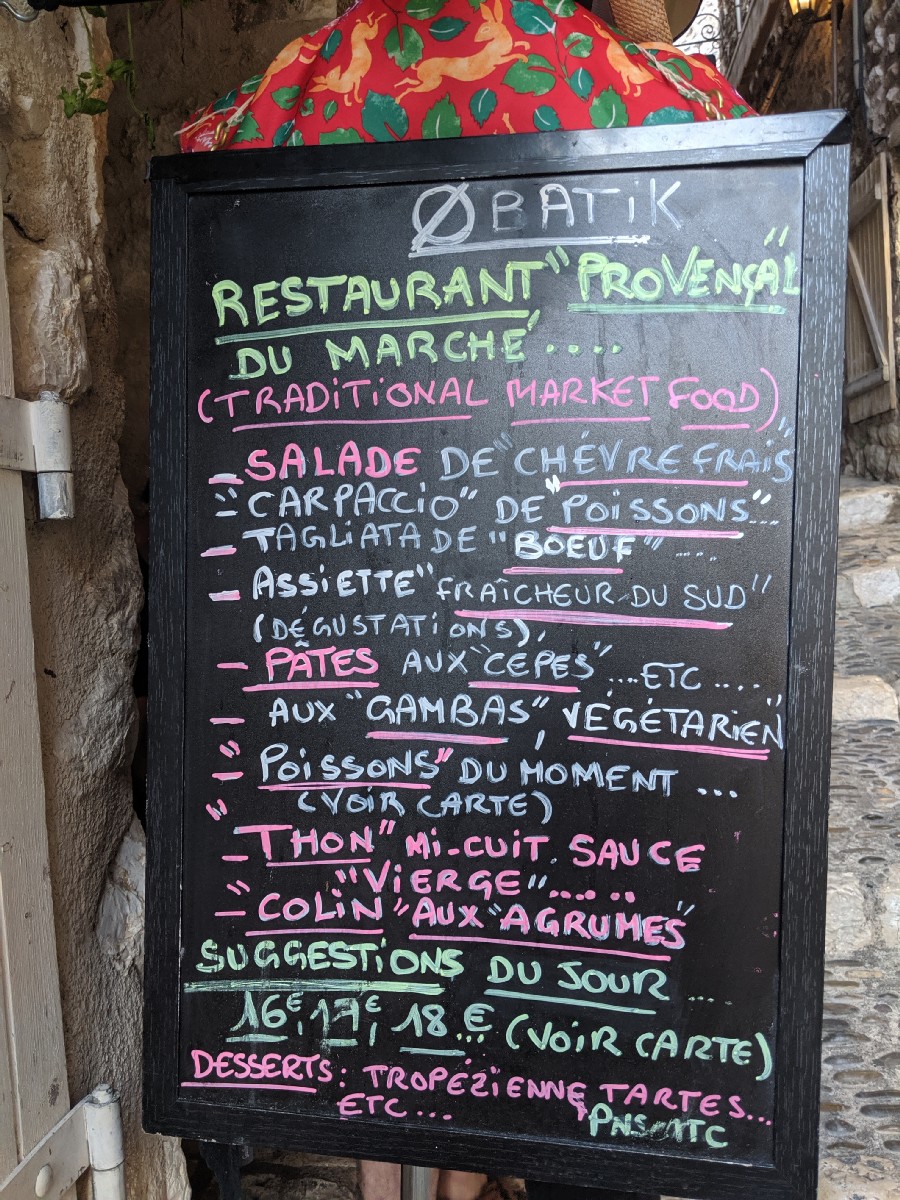 Ø BATiK
RESTAURANT "PROVENÇAL"
DU MARCHÉ ....
(TRADiTiONAL MARKET FOOD)
- SALADE DE "CHÉVRE FRAiS
"CARPACCiO" DE "POiSSONS"...
- TAGLiATA DE "BOEUF" ....
- ASSiETTE "FRAÎCHEUR DU SUD"
(DÉGUSTATiONS),
- PÂTES AUX "CÉPES" ....ETC ....
- AUX "GAMBAS", VÉGÉTARiEN"
- "POiSSONS" DU MOMENT ...
(VOiR CARTE)
- "THON" Mi-CUiT. SAUCE
"ViERGE"......
- "COLiN" AUX "AGRUMES"
SUGGESTiONS DU JOUR ...
16€, 17€, 18..€ (VOiR CARTE)
DESSERTS: TROPÉZiENNE TARTES...
ETC...